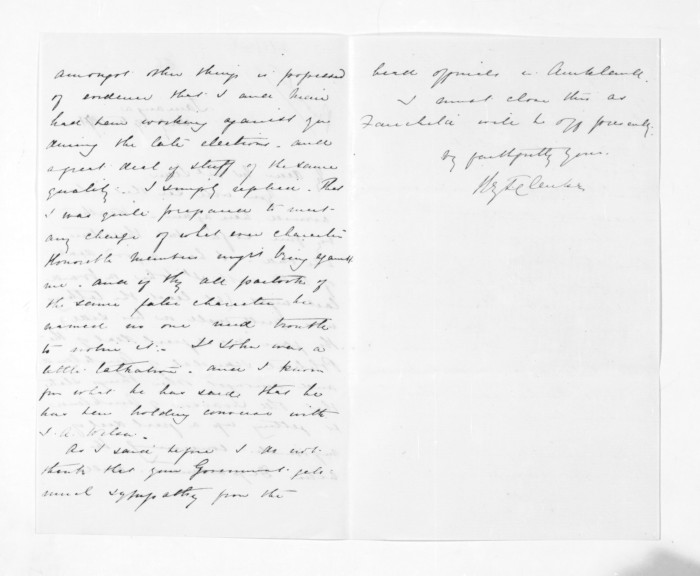 amongst other things is possessed
of evidence that I and Mair
had been working against you
during the late elections. and
a great deal of stuff of the same
quality. I simply replied. That
I was quite prepared to meet
any charge of what ever character
Honorable members might bring against
me. and if they all partook of
the same character he
named no one need trouble
to notice it. St John was a
little and I know
from what he has said. that he
has been holding converse with
J. A. Wilson.
As I said before I do not
think that your Government gets
much sympathy from the
head officials in Auckland.
I must close this as
will be off presently.
Very faithfully yours.
H. T. Clarke